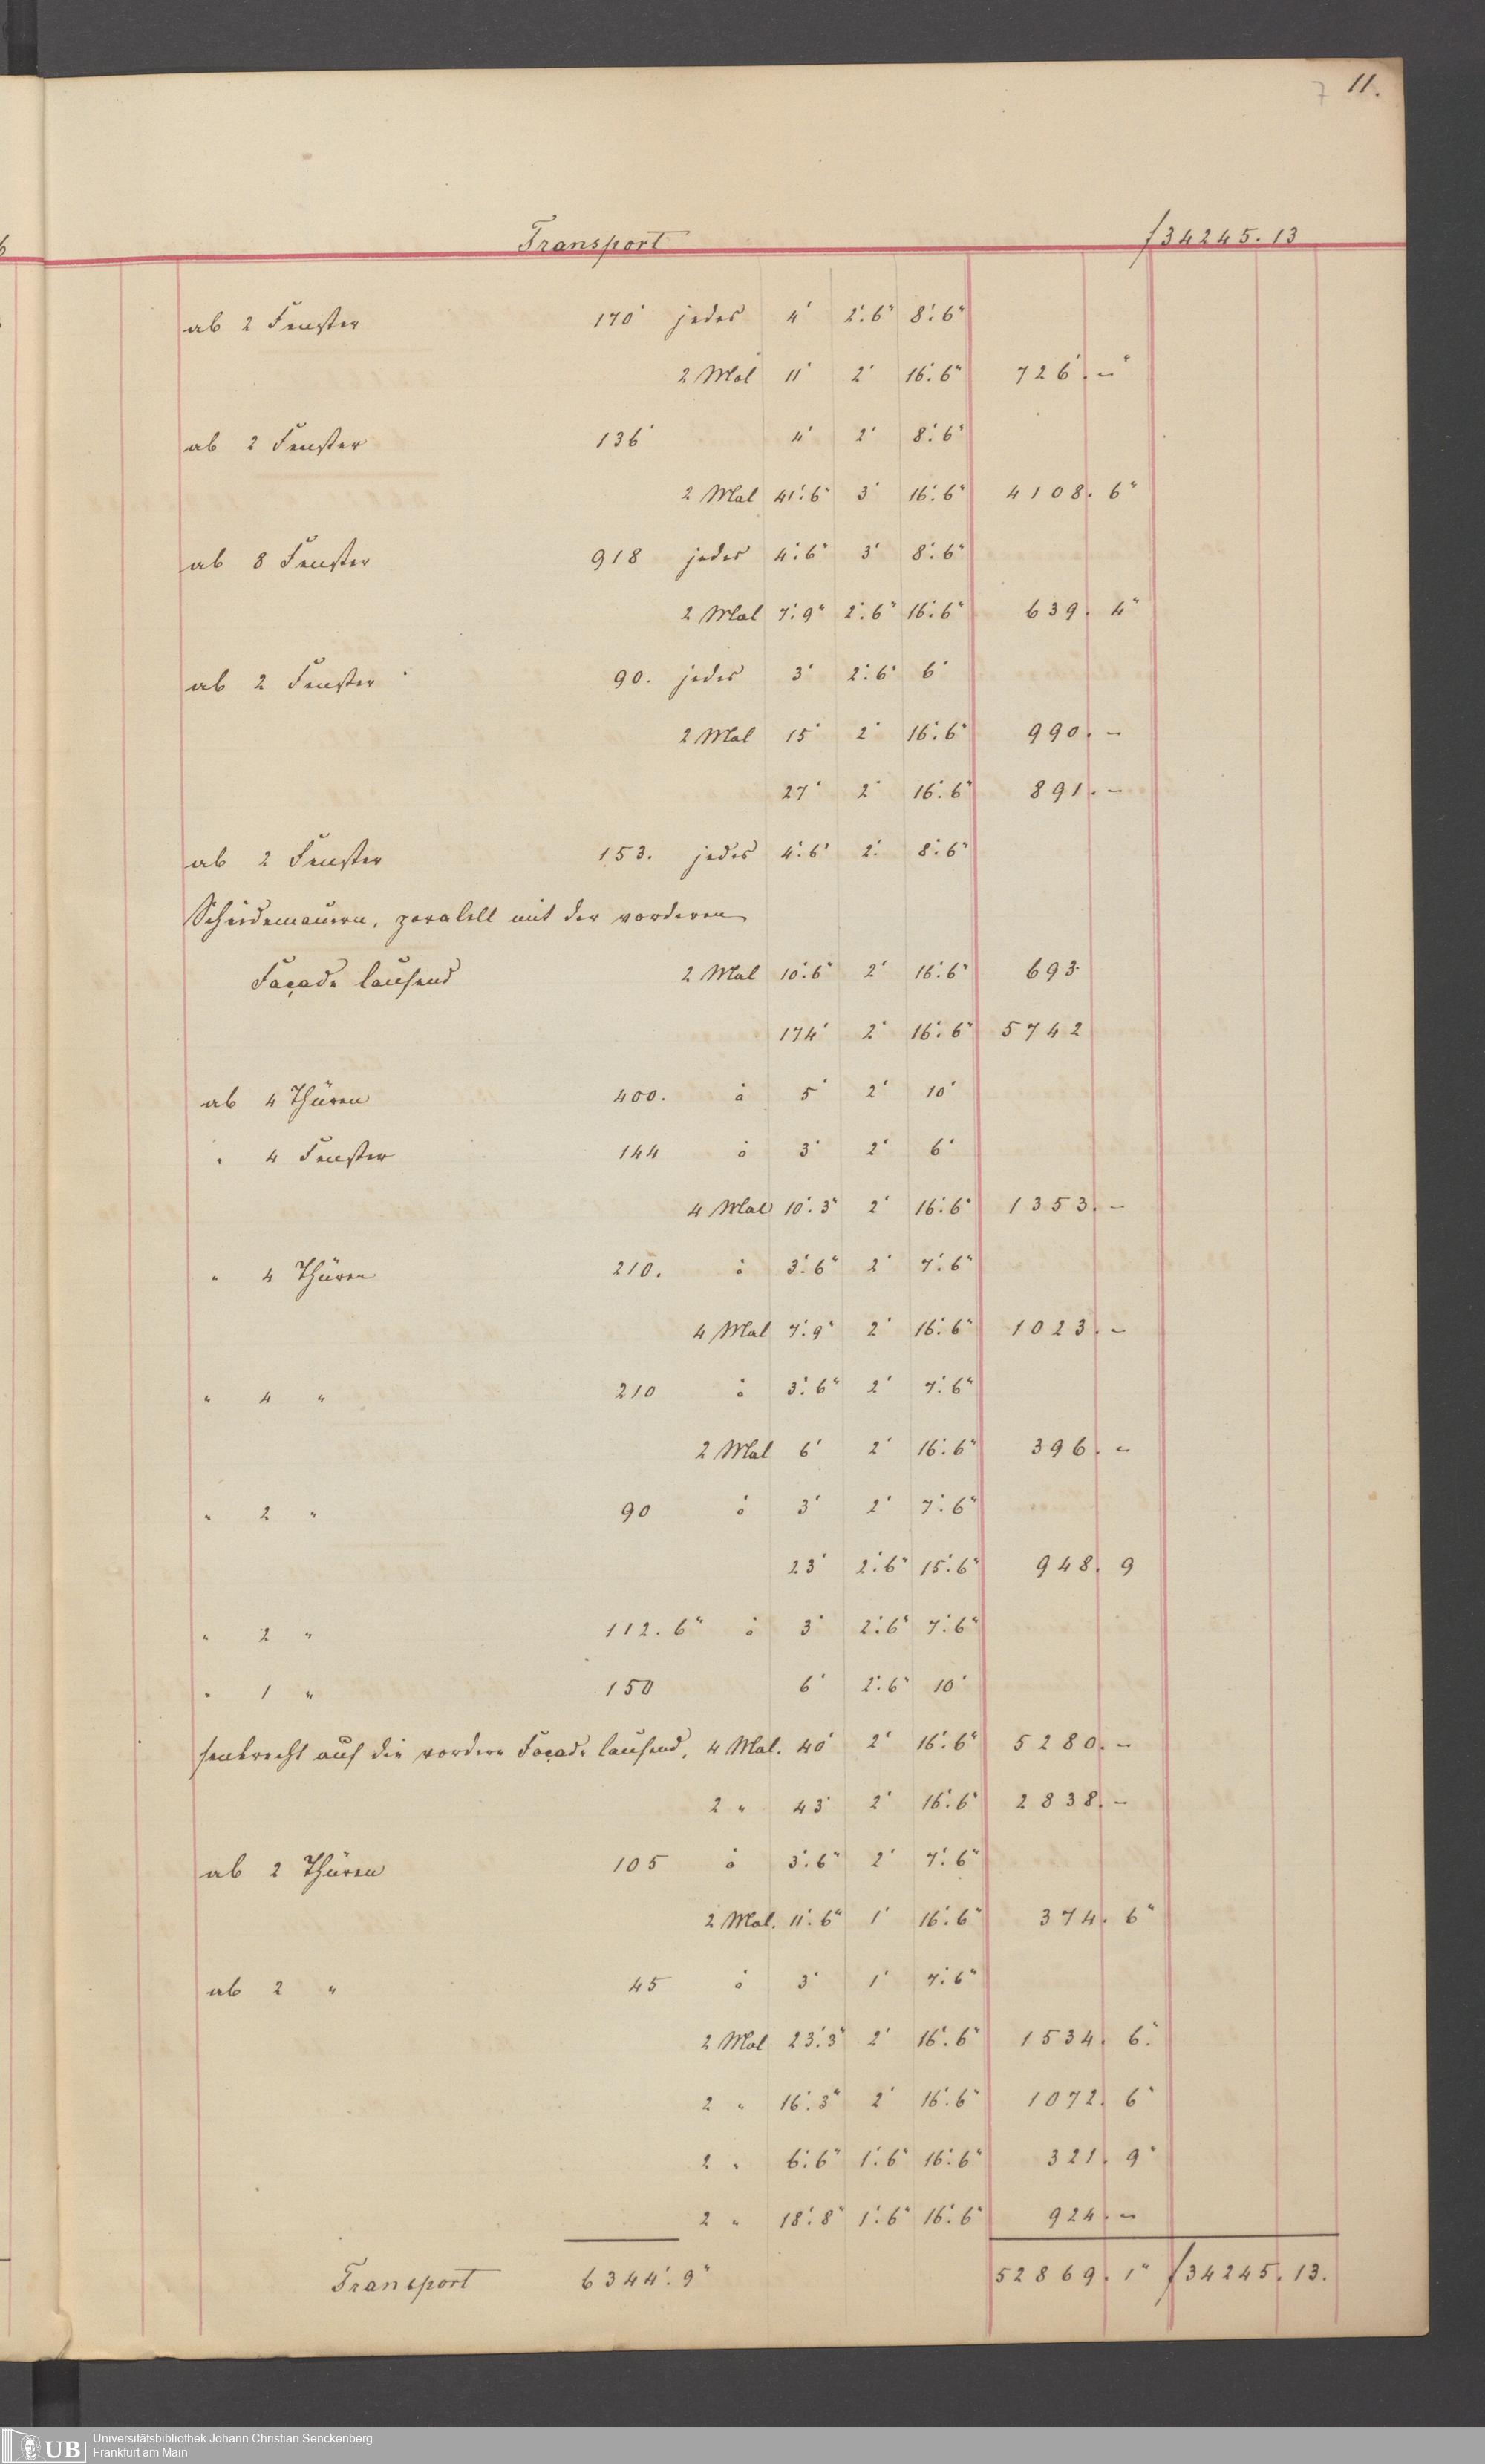 7 11.
Transport f 34245. 13
ab 2 Fenster 170' jedes 4' 2'.6" 8'.6"
2 Mal 11' 2' 16'.6" 726'. -"
ab 2 Fenster 136' 4' 2' 8'.6"
2 Mal 41'.6" 3' 16'.6" 4108. 6"
ab 8 Fenster 918 jedes 4'.6" 3' 8'.6"
2 Mal 7'.9" 2'.6" 16'.6" 639. 4"
ab 2 Fenster 90. jedes 3' 2'.6" 6'
2 Mal 15' 2' 16'.6" 990. -
27' 2' 16'.6" 891. -
ab 2 Fenster 153. jedes 4'.6" 2'. 8'.6"
Scheidemauern, paralell mit der vorderen
Façade laufend 2 Mal 10'.6" 2' 16'.6" 693.
174' 2' 16'.6" 5742
ab 4 Thüren 400. à 5' 2' 10'
" 4 Fenster 144 à 3' 2' 6'
4 Mal 10'.3" 2' 16'.6" 1353. -
" 4 Thüren 210. à 3'.6" 2' 7'.6"
4 Mal 7'.9" 2' 16'.6" 1023. -
" 4 " 210 à 3'.6" 2' 7'.6"
2 Mal 6' 2' 16'.6" 396. -
" 2 " 90 à 3' 2' 7'.6"
23' 2'.6" 15'.6" 948. 9
" 2 " 112. 6" à 3' 2'.6" 7'.6"
" 1 " 150 6' 2'.6" 10'
senkrecht auf die vordere Façade laufend, 4 Mal. 40' 2' 16'.6" 5280. -
2 " 43' 2' 16'.6" 2838. -
ab 2 Thüren 105 à 3'.6" 2' 7'.6"
2 Mal. 11'.6" 1' 16'.6" 374. 6"
ab 2 " 45 à 3' 1' 7'.6"
2 Mal 23'.3" 2' 16'.6" 1534. 6."
2 " 16'.3" 2' 16'.6" 1072. 6"
2 " 6'.6" 1'.6" 16'.6" 321. 9"
2 " 18'.8" 1'.6" 16'.6" 924. -
Transport 6344'. 9" 52869. 1" f 34245. 13.
UB Universitätsbibliothek Johann Christian Senckenberg
Frankfurt am Main